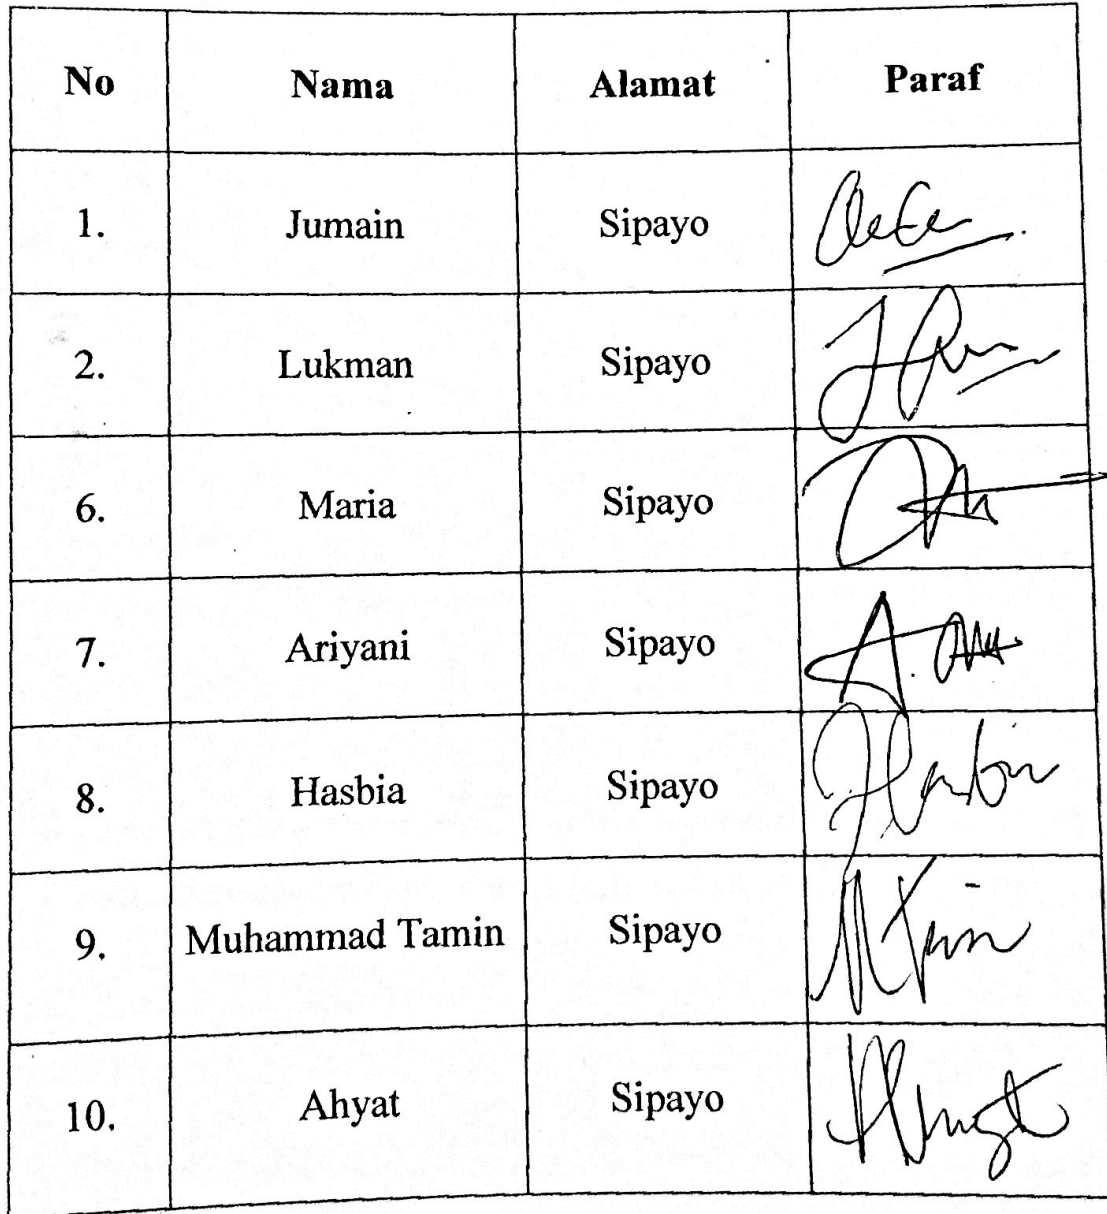 No Nama Alamat Paraf
1. Jumain Sipayo
2. Lukman Sipayo
6. Maria Sipayo
7. Ariyani Sipayo
8. Hasbia Sipayo
9. Muhammad Tamin Sipayo
10. Ahyat Sipayo